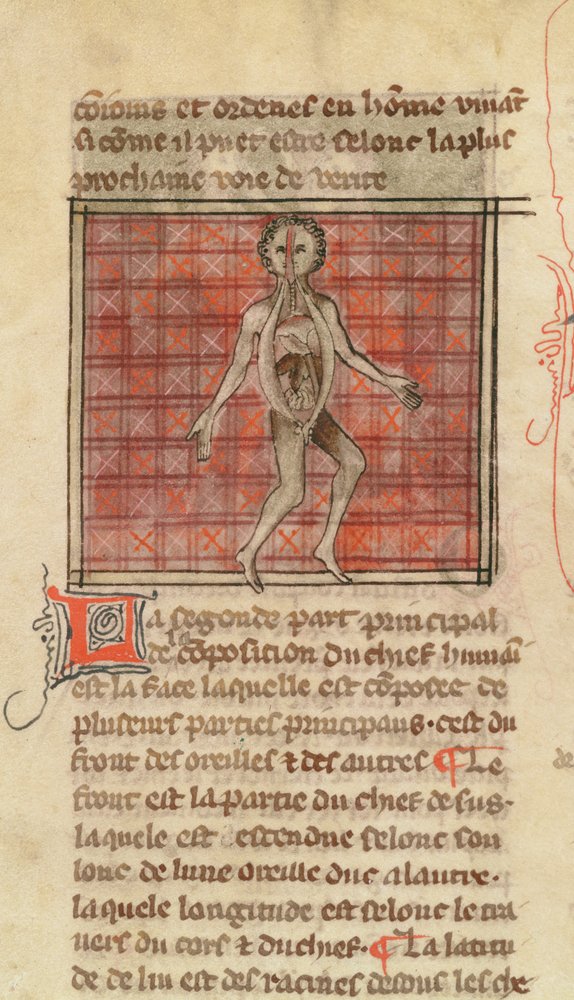 cōioins et ordenes en hōme viuāt
si cōme il puet estre selonc la plus
prochaine voie de verite
La segende part principal
de la cōposition du chief humaī
est la face laquelle est cōposee de
pluseurs parties principaus · cest du
front des oreilles ⁊ des autres ¶ Le
front est la partie du chief desus ·
laquele est estendue selonc son
lonc de lune oreille duc a lautre ·
laquele longitude est selonc le tra
uers du cors ⁊ du chief · ¶ La latitu
de de lui est des racines desous les che